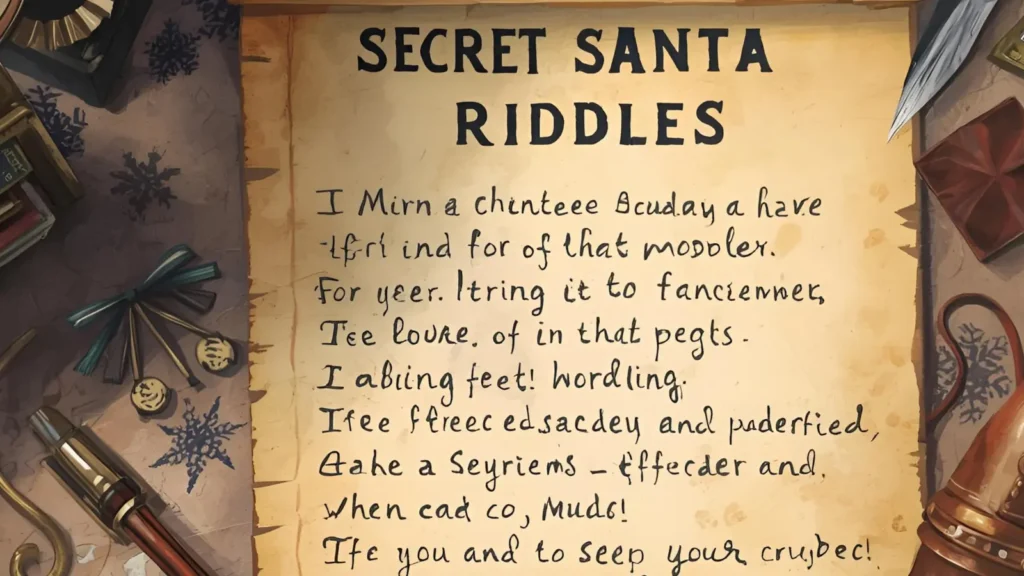 SECRET SANTA
RIDDLES
I Mirn a chinteee Bcuday a have
ind for of that moppler.
For yeer. Itring it to fanciennet,
Tee loure. of in that pegts.
I abiing feet! hordling.
Ifee ffreec edsacdey and paderfied,
a Seyriems – and.
when cad co, Mudc!
Ife you and to seep your crujbec!